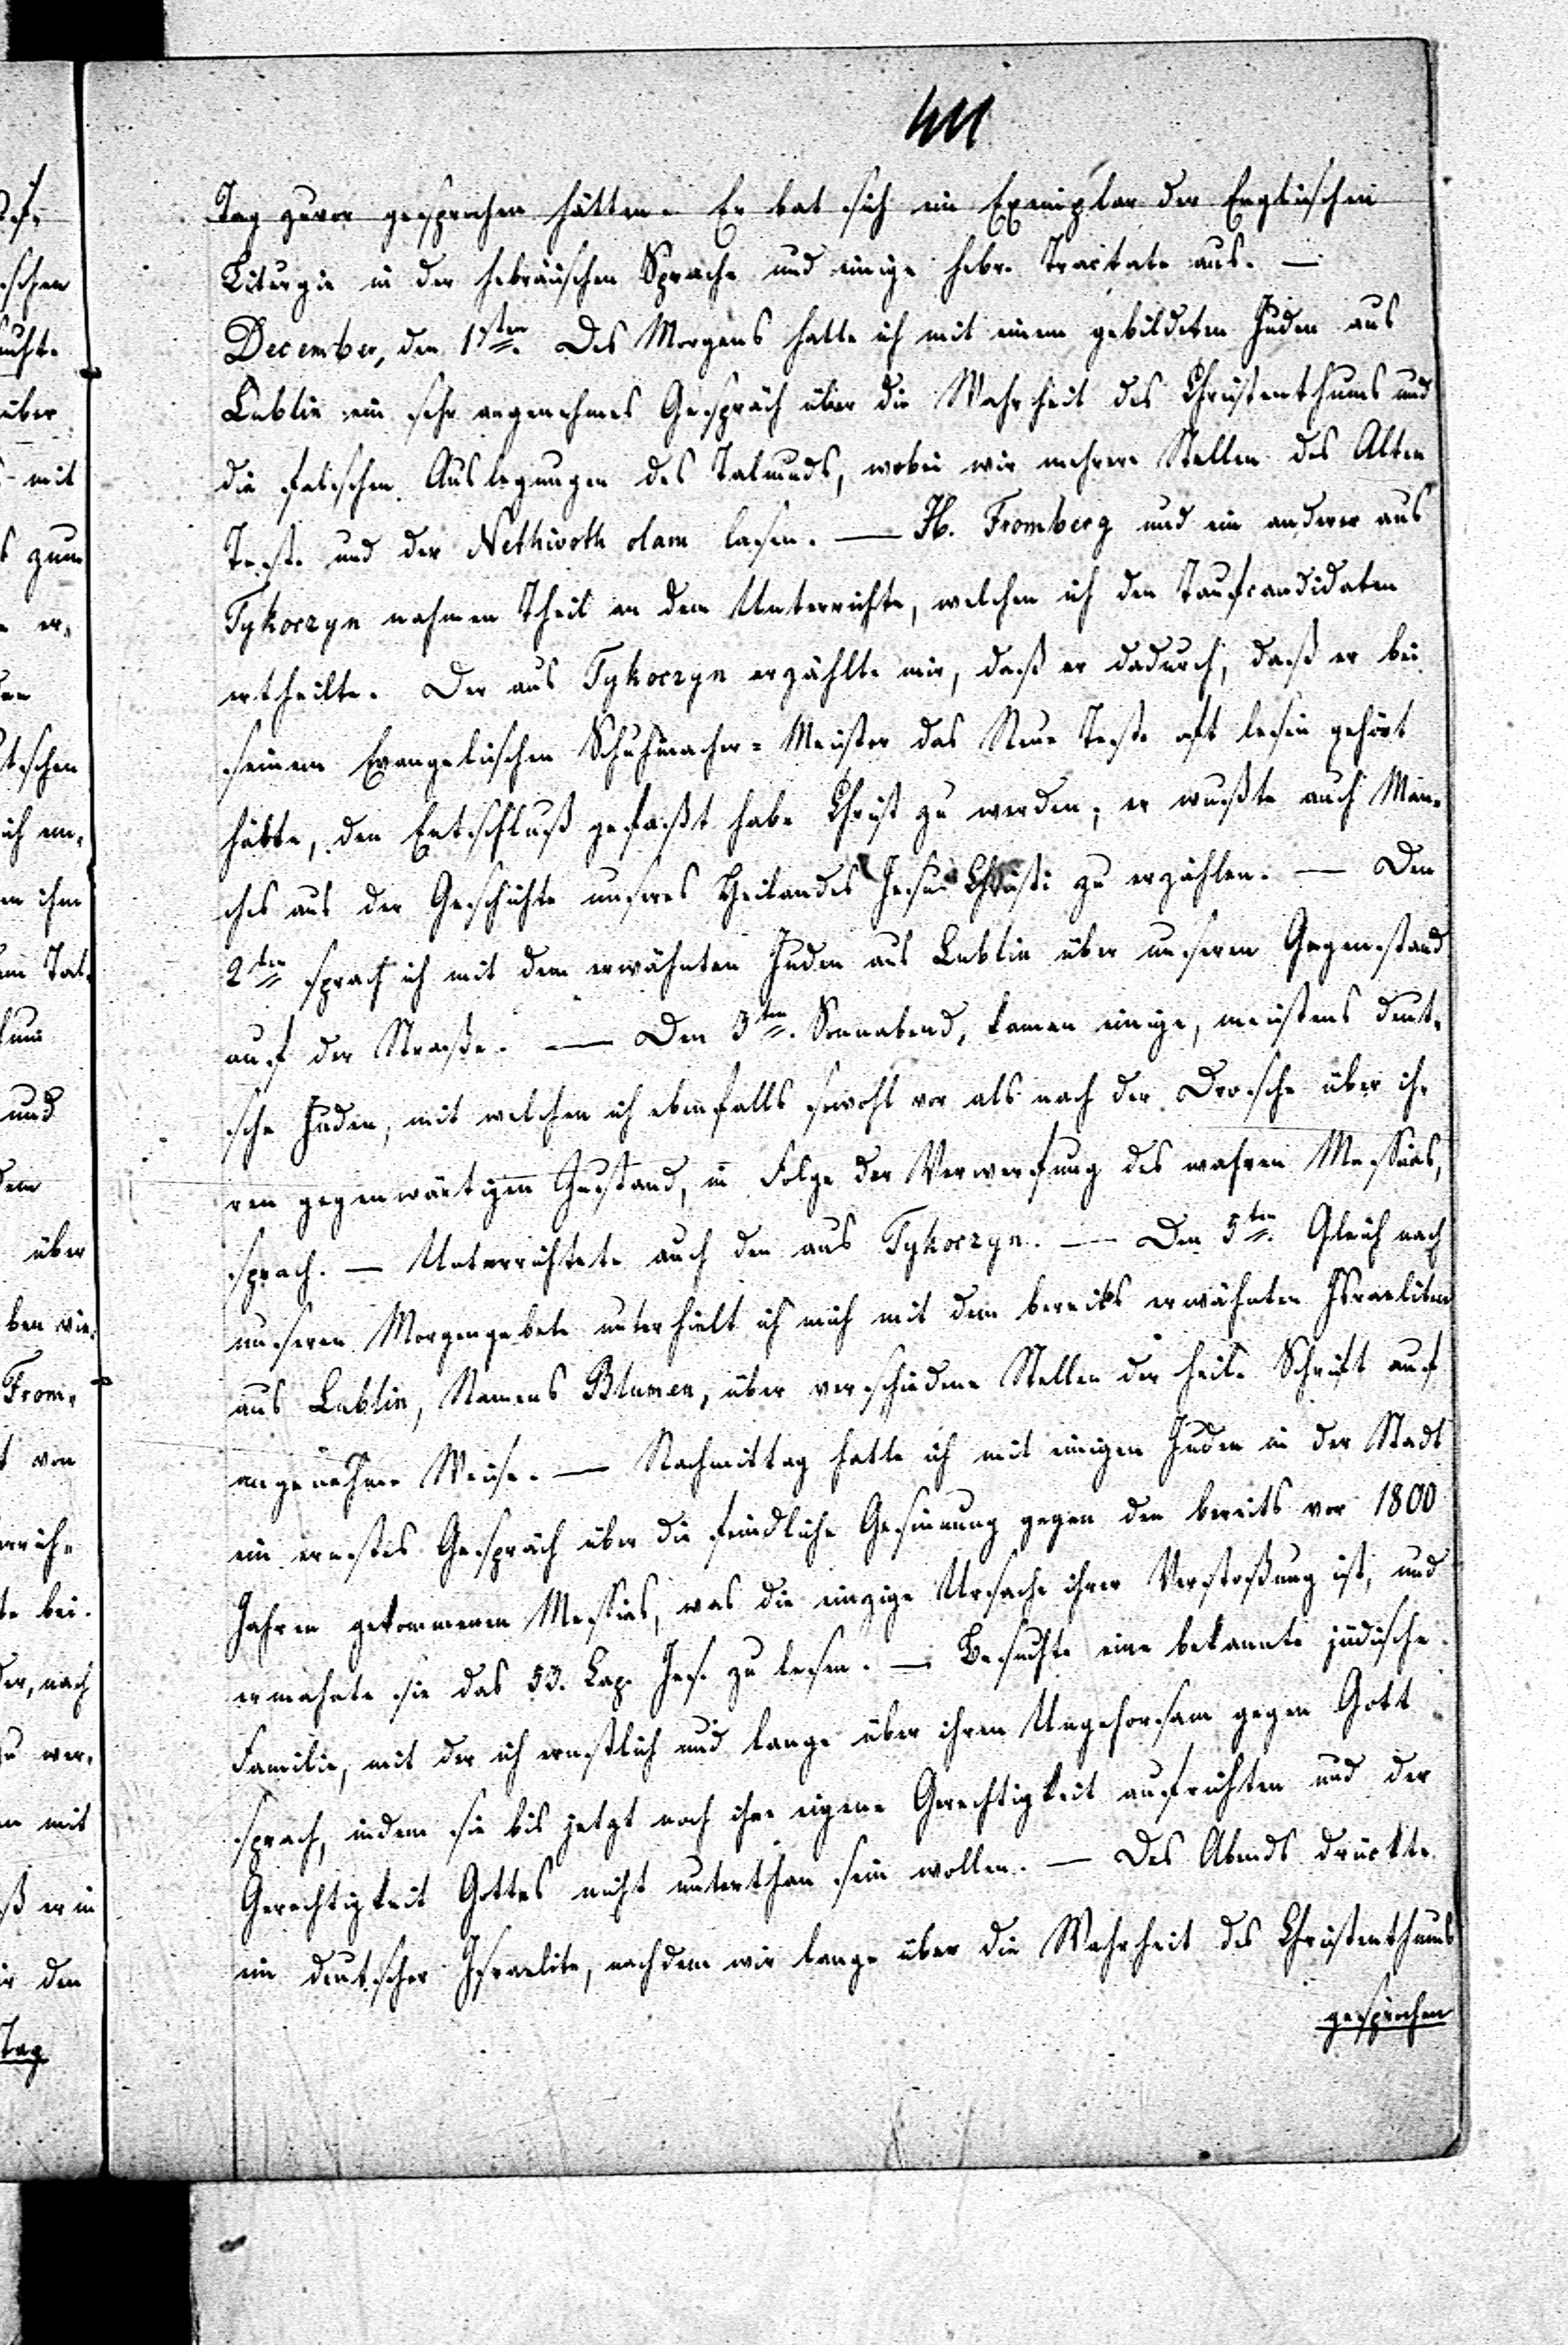 Tag zuvor gesprochen hätten. Er bat sich ein Exemplar der Englischen
Liturgie in der hebräischen Sprache und einige hebr. Tractate aus. —
December, den 1sten. Des Morgens hatte ich mit einem gebildeten Juden aus
Lublin ein sehr angenehmes Gespräch über die Wahrheit des Christenthums und
die falschen Auslegungen des Talmuds, wobei wir mehrere Stellen des Alten
Test. und der Nethivoth olam lasen. — H. Fromberg und ein anderer aus
Tykoczyn nahmen Theil an dem Unterrichte, welchen ich den Taufcandidaten
ertheilte. Der aus Tykoczyn erzählte mir, daß er dadurch, daß er bei
seinem Evangelischen Schuhmacher-Meister das Neue Test. oft lesen gehört
hätte, den Entschluß gefaßt habe Christ zu werden; er wußte auch Man-
ches aus der Geschichte unseres Heilandes Jesus Christi zu erzählen. — Den
2ten sprach ich mit dem erwähnten Juden aus Lublin über unseren Gegenstand
auf der Straße. — Den 3ten. Sonnabend, kamen einige, meistens deut-
sche Juden, mit welchen ich ebenfalls sowohl vor als nach der Drosche über ih-
ren gegenwärtigen Zustand, in Folge der Verwerfung des wahren Messias,
sprach. — Unterrichtete auch den aus Tykoczyn. — Den 5ten. Gleich nach
unserem Morgengebete unterhielt ich mich mit dem bereits erwähnten Israeliten
aus Lublin, Namens Blumen, über verschiedene Stellen der heil. Schrift auf
angenehme Weise. — Nachmittag hatte ich mit einigen Juden in der Stadt
ein ernstes Gespräch über die feindliche Gesinnung gegen den bereits vor 1800
Jahren gekommenen Messias, was die einzige Ursache ihrer Verstoßung ist, und
ermahnte sie das 53. Cap. Jes. zu lesen. — Besuchte eine bekannte jüdische
Familie, mit der ich ernstlich und lange über ihren Ungehorsam gegen Gott
sprach, indem sie bis jetzt noch ihre eigene Gerechtigkeit aufrichten und der
Gerechtigkeit Gottes nicht unterthan sein wollen. — Des Abends drückte
ein deutscher Israelite, nachdem wir lange über die Wahrheit des Christenthums
gesprochen